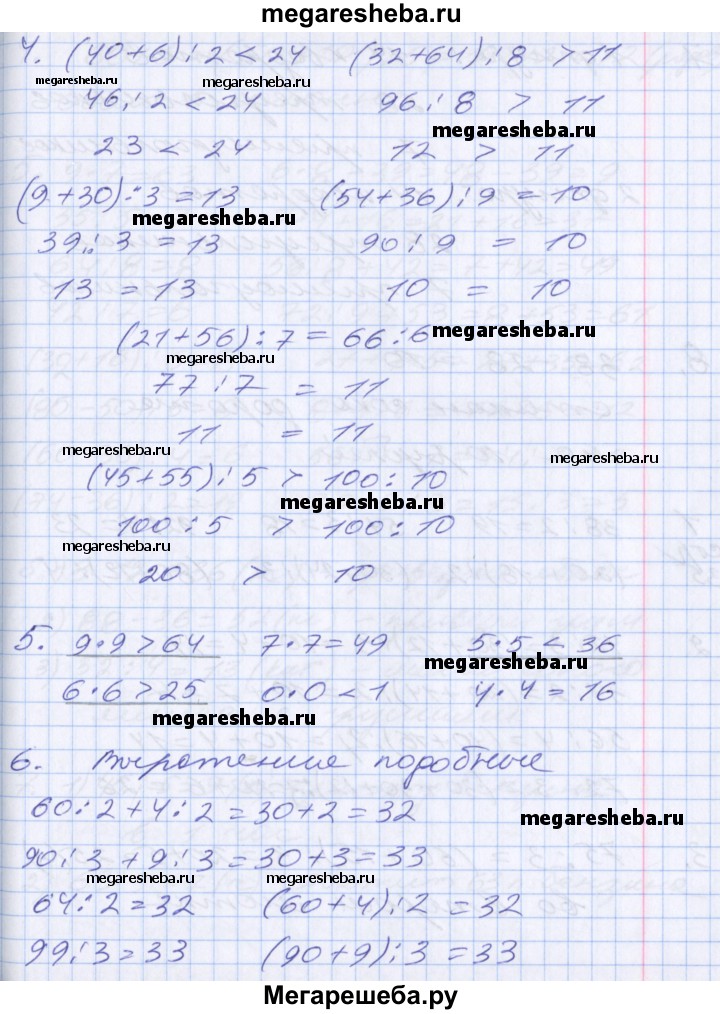 megaresheba.ru
4. (40+6):2<24 (32+64):8 >11
megaresheba.ru
46:2 < 24 96:8 > 11
megaresheba.ru
23 < 24 12 > 11
(9+30):3=13 (54+36):9 = 10
megaresheba.ru
39:3 = 13 90:9 = 10
13 = 13 10 = 10
(21+56):7 = 66:6
megaresheba.ru
megaresheba.ru
77:7 = 11
11 = 11
megaresheba.ru
megaresheba.ru
(45+55):5 > 100:10
megaresheba.ru
100:5 > 100:10
megaresheba.ru
20 > 10
5. 9·9>64 7·7=49 5·5<36
megaresheba.ru
6·6>25 0·0<1 4·4=16
megaresheba.ru
6. Выражение подобные
60:2+4:2=30+2=32
megaresheba.ru
90:3+9:3=30+3=33
megaresheba.ru megaresheba.ru
64:2=32 (60+4):2=32
99:3=33 (90+9):3=33
megaresheba.ru
Мегарешеба.ру